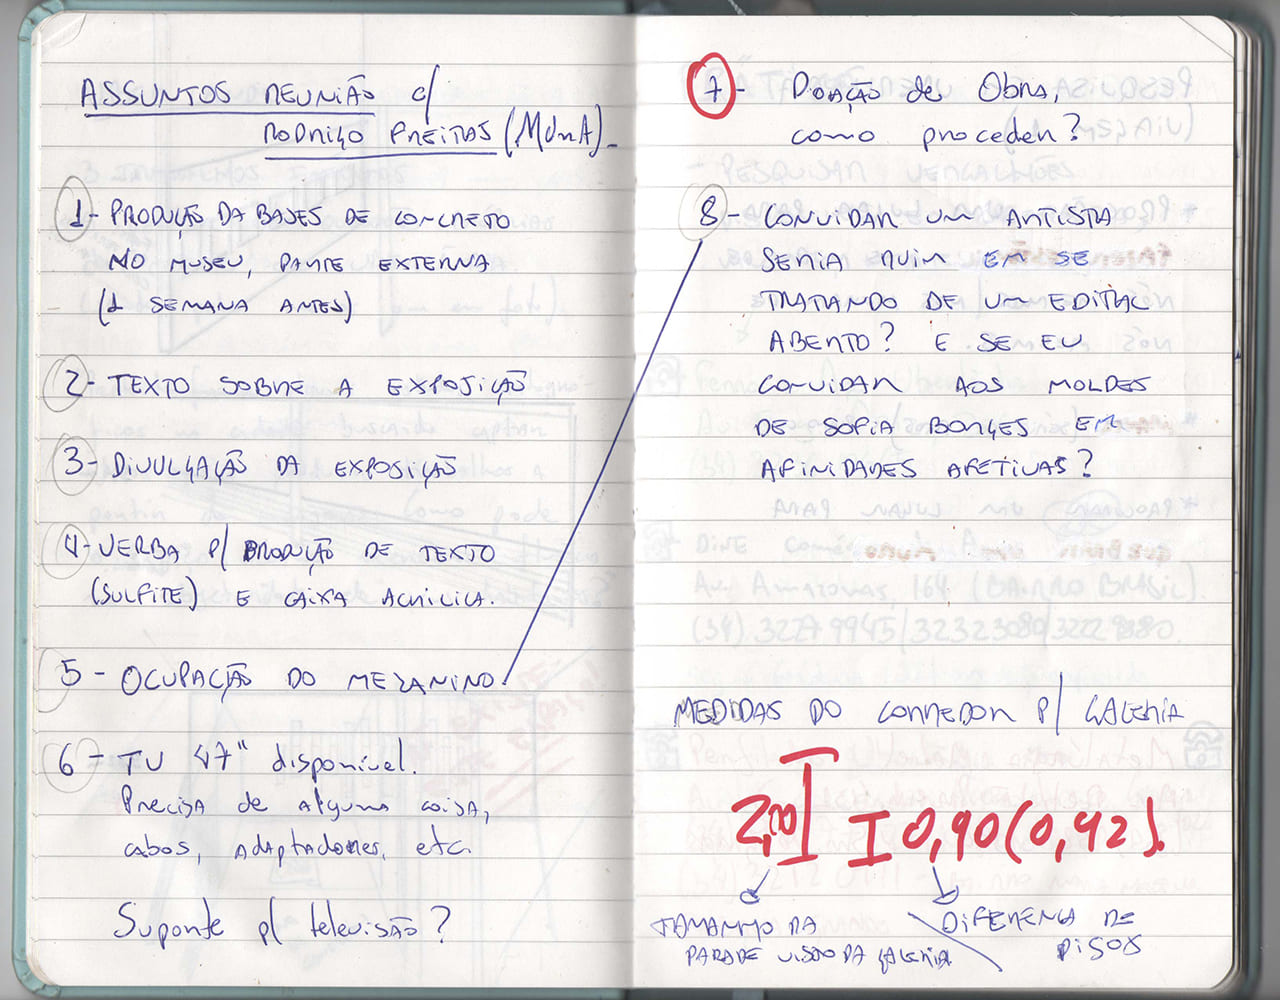 ASSUNTOS REUNIÃO c/
RODRIGO FREITAS (MUnA)_
1- PRODUÇÃO DA BASES DE CONCRETO
NO MUSEU, PARTE EXTERNA
(1 SEMANA ANTES)
2- TEXTO SOBRE A EXPOSIÇÃO
3- DIVULGAÇÃO DA EXPOSIÇÃO
4- VERBA P/ PRODUÇÃO DE TEXTO
(SULFITE) E CAIXA ACRILICA.
5 - OCUPAÇÃO DO MEZANINO.
6 - TV 47" disponível.
Precisa de alguma coisa,
cabos, adaptadores, etc.
Suporte p/ televisão?
7 - Doação de Obra,
como proceder?
8 - CONVIDAR UM ARTISTA
SERIA RUIM EM SE
TRATANDO DE UM EDITAL
ABERTO? E SE EU
CONVIDAR AOS MOLDES
DE SOFIA BORGES EM
AFINIDADES AFETIVAS?
MEDIDAS DO CORREDOR P/ GALERIA
2,00 I 0,90 (0,92).
TAMANHO DA
PAREDE VISÃO DA GALERIA
DIFERENÇA DE
PISOS